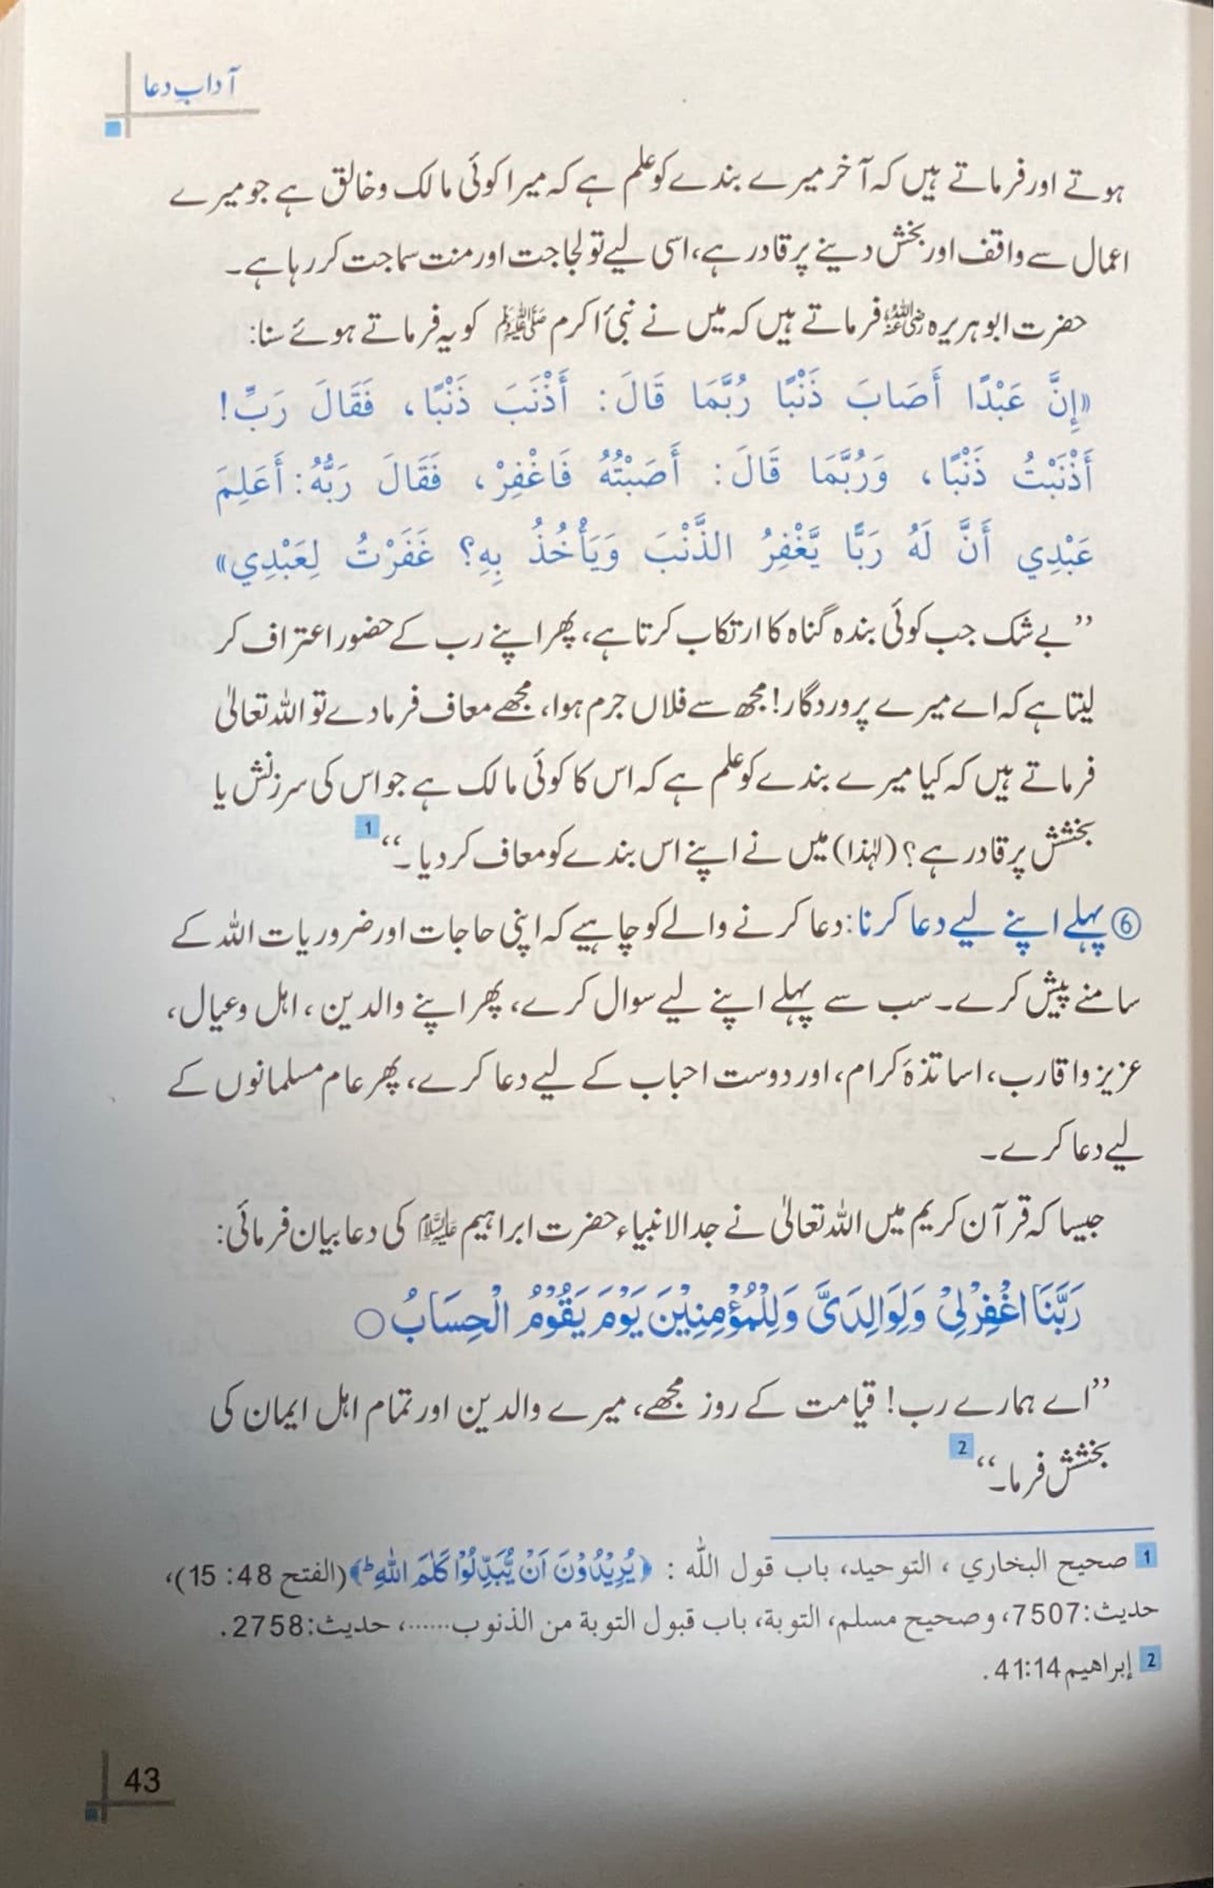 آدابِ دعا
ہوتے اور فرماتے ہیں کہ آخر میرے بندے کو علم ہے کہ میرا کوئی مالک و خالق ہے جو میرے
اعمال سے واقف اور بخش دینے پر قادر ہے، اسی لیے تو لجاجت اور منت سماجت کر رہا ہے۔
حضرت ابو ہریرہ رضی اللہ عنہ فرماتے ہیں کہ میں نے نبیٔ اکرم ﷺ کو یہ فرماتے ہوئے سنا:
«إِنَّ عَبْدًا أَصَابَ ذَنْبًا رُبَّمَا قَالَ: أَذْنَبَ ذَنْبًا، فَقَالَ رَبِّ!
أَذْنَبْتُ ذَنْبًا، وَرُبَّمَا قَالَ: أَصَبْتُهُ فَاغْفِرْ، فَقَالَ رَبُّهُ: أَعَلِمَ
عَبْدِي أَنَّ لَهُ رَبًّا يَّغْفِرُ الذَّنْبَ وَيَأْخُذُ بِهِ؟ غَفَرْتُ لِعَبْدِي»
’’بے شک جب کوئی بندہ گناہ کا ارتکاب کرتا ہے، پھر اپنے رب کے حضور اعتراف کر
لیتا ہے کہ اے میرے پروردگار! مجھ سے فلاں جرم ہوا، مجھے معاف فرما دے تو اللہ تعالیٰ
فرماتے ہیں کہ کیا میرے بندے کو علم ہے کہ اس کا کوئی مالک ہے جو اس کی سرزنش یا
بخشش پر قادر ہے؟ (لہٰذا) میں نے اپنے اس بندے کو معاف کر دیا۔‘‘ 1
⑥ پہلے اپنے لیے دعا کرنا: دعا کرنے والے کو چاہیے کہ اپنی حاجات اور ضروریات اللہ کے
سامنے پیش کرے۔ سب سے پہلے اپنے لیے سوال کرے، پھر اپنے والدین، اہل و عیال،
عزیز و اقارب، اساتذۂ کرام، اور دوست احباب کے لیے دعا کرے، پھر عام مسلمانوں کے
لیے دعا کرے۔
جیسا کہ قرآن کریم میں اللہ تعالیٰ نے جد الانبیاء حضرت ابراہیم علیہ السلام کی دعا بیان فرمائی:
رَبَّنَا اغْفِرْ لِيْ وَلِوَالِدَيَّ وَلِلْمُؤْمِنِيْنَ يَوْمَ يَقُوْمُ الْحِسَابُ ○
’’اے ہمارے رب! قیامت کے روز مجھے، میرے والدین اور تمام اہل ایمان کی
بخشش فرما۔‘‘ 2
1 صحيح البخاري، التوحيد، باب قول الله: ﴿يُرِيْدُوْنَ اَنْ يُّبَدِّلُوْا كَلٰمَ اللّٰهِ ؕ﴾ (الفتح 48: 15)،
حديث: 7507، وصحيح مسلم، التوبة، باب قبول التوبة من الذنوب......، حديث: 2758.
2 إبراهيم 41:14.
43